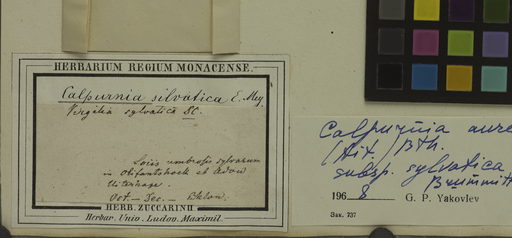 HERBARIUM REGIUM MONACENSE.
Calpurnia silvatica E. Mey
Virgilia sylvatica DC.
Locis umbrosis sylvarum
in Olifantshoek et Adow
Uitenhage.
Oct – Dec. – Ecklon.
HERB. ZUCCARINII
Herbar. Univ. Ludov. Maximil.
Calpurnia aure
(Ait.) Bth.
subsp. sylvatica
Brummitt
196 8 G. P. Yakovlev
Зак. 737